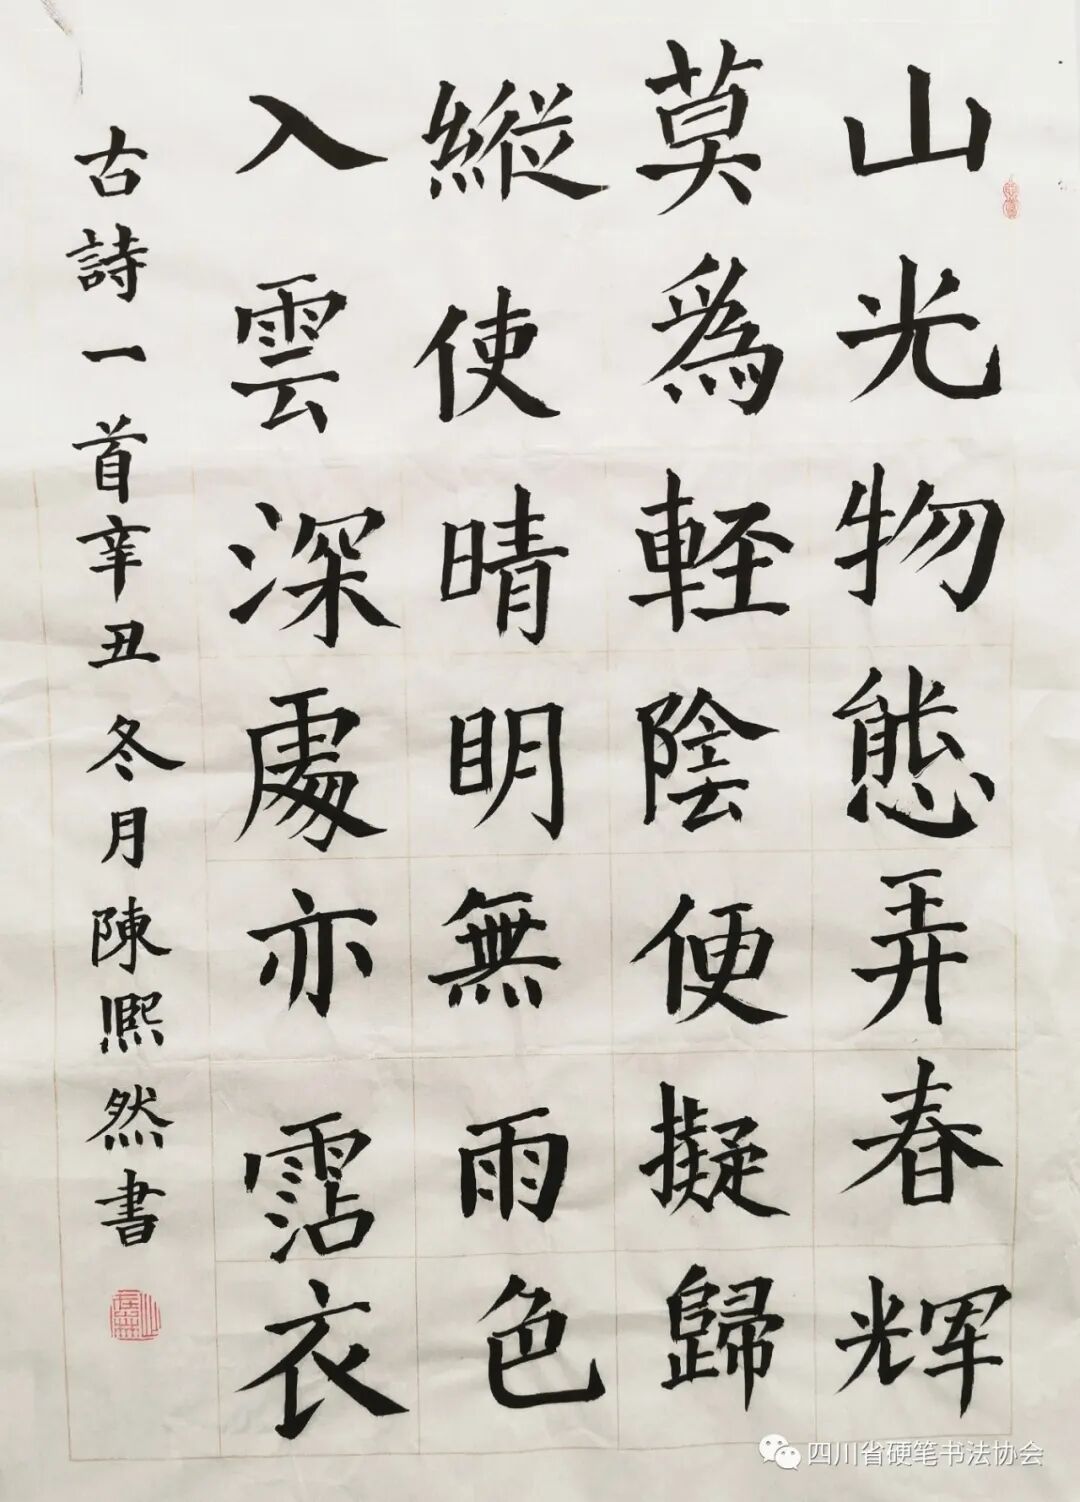 山光物態弄春輝
莫為輕陰便擬歸
縱使晴明無雨色
入雲深處亦霑衣
古詩一首辛丑冬月陳熙然書
四川省硬笔书法协会